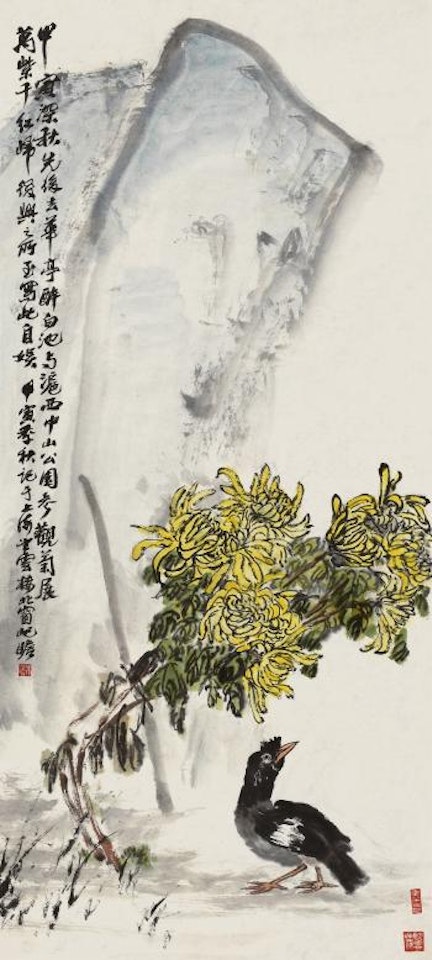 甲寅深秋先後去華亭醉白池与滬西中山公園參觀菊展
萬紫千紅歸後興之所至寫此自娛 甲寅季秋記于上海雲樓北窗屺瞻